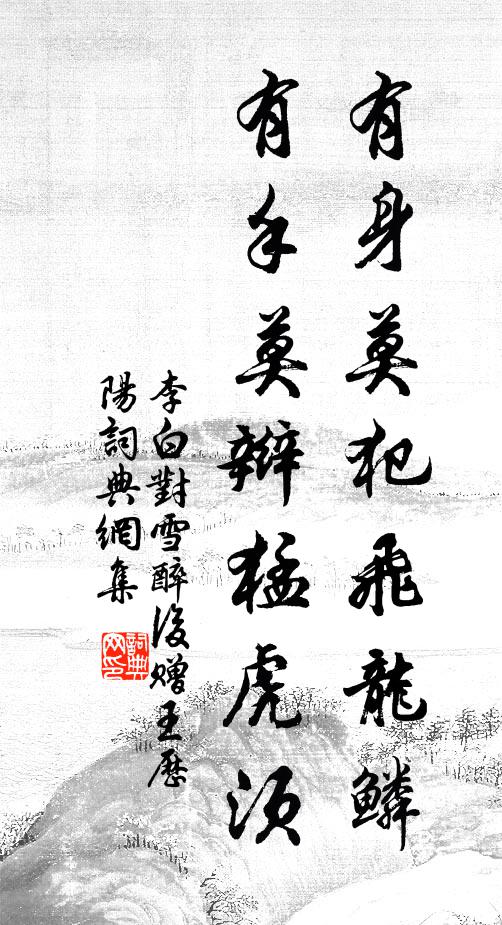 有身莫犯飛龍鱗
有手莫辮猛虎須
李白對雪醉後贈王歷
陽詞典網集
詞典
网印